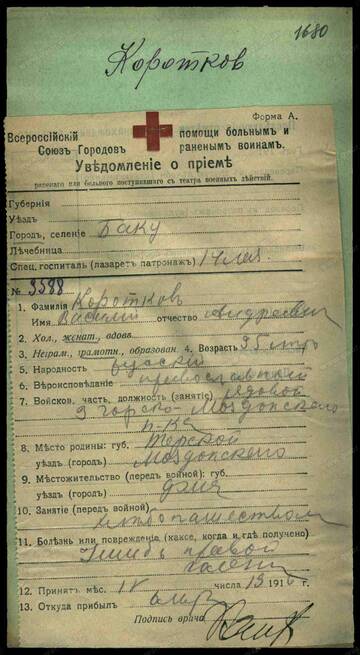 1680
Коротков
Форма А.
Всероссійскій помощи больнымъ и
Союзъ Городовъ раненымъ воинамъ.
Увѣдомленіе о пріемѣ
раненаго или больного поступившаго съ театра военныхъ дѣйствій.
Губернія
Уѣздъ
Городъ, селеніе Баку
Лѣчебница
Спец. госпиталь (лазаретъ патронажъ) 14 лаз.
№ 3588
1. Фамилія Коротковъ
Имя Василий отчество Андреевич
2. Хол., женат., вдовъ.
3. Неграм., грамотн., образован. 4. Возрастъ 35 лѣтъ
5. Народность русский
6. Вѣроисповѣданіе православный
7. Войсков. часть, должность (занятіе) рядовой
3 горско-Моздокского
п-ка
8. Мѣсто родины: губ. Терской
уѣздъ (городъ) Моздокского
9. Мѣстожительство (передъ войной): губ.
уѣздъ (городъ) дома
10. Занятіе (передъ войной)
хлебопашеством
11. Болѣзнь или поврежденіе (каксе, когда и гдѣ получено)
Ушибъ правой
голени
12. Принятъ мѣс. IV числа 13 1916 г.
13. Откуда прибылъ
Подпись врача